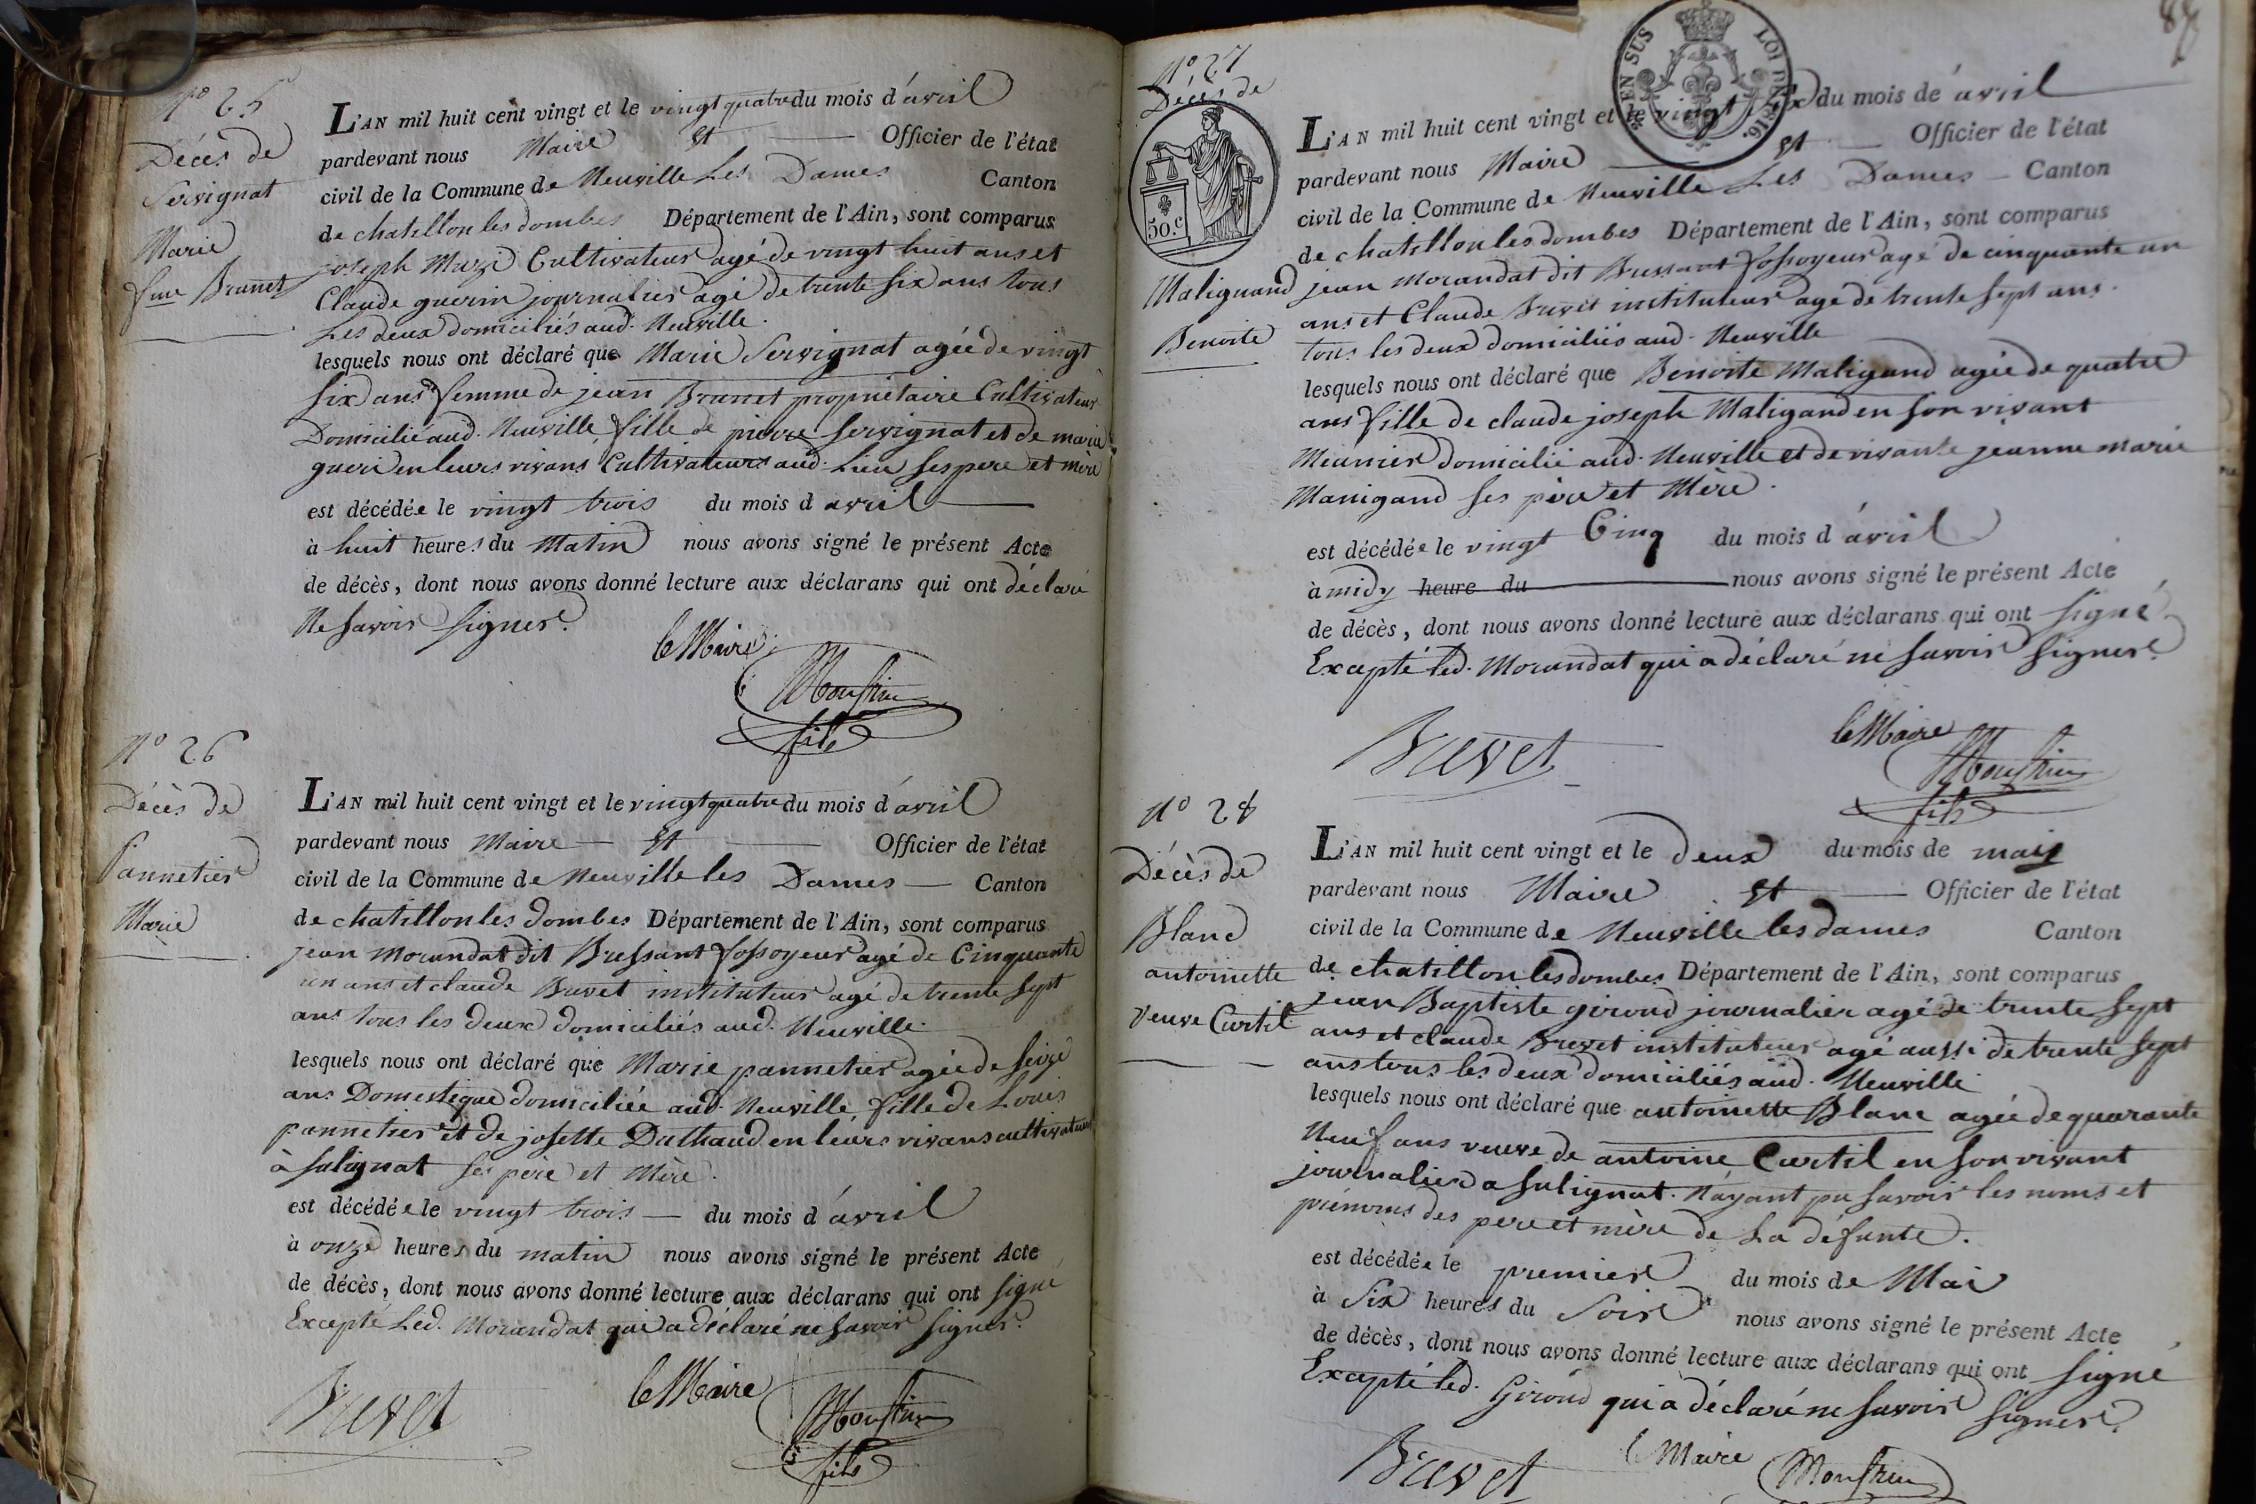 N.o 25
Décès de
Servignat
Marie
fme Brunet
L'AN mil huit cent vingt et le vingt quatre du mois d'avril
pardevant nous Maire Et Officier de l'état
civil de la Commune de Neuville Les Dames Canton
de chatillon les dombes Département de l'Ain, sont comparus
joseph Cultivateur agé de vingt huit ans et
Claude guerin journalier agé de trente six ans tous
Les deux domiciliés aud. Neuville.
lesquels nous ont déclaré que Marie Servignat agée de vingt
six ans femme de jean Brunet propriétaire Cultivateur
Domicilié aud. Neuville, fille de pierre Servignat et de marie
gueri en leurs vivans Cultivateurs aud. Lieu ses pere et mère
est décédée le vingt trois du mois d avril
à huit heures du Matin nous avons signé le présent Acte
de décès, dont nous avons donné lecture aux déclarans qui ont déclaré
Ne savoir signer.
le Maire
Monfrin
fils
N.o 26
Décès de
Pannetier
Marie
L'AN mil huit cent vingt et le vingt quatre du mois d'avril
pardevant nous Maire Et Officier de l'état
civil de la Commune de Neuville les Dames Canton
de chatillon les dombes Département de l'Ain, sont comparus
jean Morandat dit Bressant fossoyeur agé de Cinquante
un ans et claude Buvet instituteur agé de trente sept
ans tous les deux domiciliés aud. Neuville.
lesquels nous ont déclaré que Marie pannetier agée de seize
ans Domestique domiciliée aud. Neuville, fille de Louis
pannetier et de josette en leurs vivans cultivateurs
à sulignat ses pere et Mère.
est décédée le vingt trois du mois d'avril
à onze heures du matin nous avons signé le présent Acte
de décès, dont nous avons donné lecture aux déclarans qui ont signé
Excepté Led. Morandat qui a déclaré ne savoir signer.
Buvet
le Maire
Monfrin
fils
N.o 27
Décès de
50.c
Maliguand
Benoite
EN SUS LOI DE 1816.
L'AN mil huit cent vingt et le vingt six du mois de avril
pardevant nous Maire Et Officier de l'état
civil de la Commune de Neuville Les Dames Canton
de chatillon les dombes Département de l'Ain, sont comparus
jean Morandat dit Bressant fossoyeur agé de cinquante un
ans et Claude Buvet instituteur agé de trente sept ans.
tous les deux domiciliés aud. Neuville
lesquels nous ont déclaré que Benoite Maligand agée de quatre
ans fille de claude joseph Maligand en son vivant
Meunier domicilié aud. Neuville et de vivante jeanne marie
Manigand ses père et Mère.
est décédée le vingt Cinq du mois d'avril
à midy heure du nous avons signé le présent Acte
de décès, dont nous avons donné lecture aux déclarans qui ont signé
Excepté led. Morandat qui a déclaré ne savoir signer.
Buvet
le Maire
Monfrin
fils
N.o 28
Décès de
Blanc
antoinette
veuve Curtil
L'AN mil huit cent vingt et le deux du mois de mai
pardevant nous Maire Et Officier de l'état
civil de la Commune de Neuville les dames Canton
de chatillon les dombes Département de l'Ain, sont comparus
jean Baptiste giroud journalier agé de trente sept
ans et claude Buvet instituteur agé aussi de trente sept
ans tous les deux domiciliés aud. Neuville
lesquels nous ont déclaré que antoinette Blanc agée de quarante
Neuf ans veuve de antoine Curtil en son vivant
journalier a sulignat. N'ayant pu savoir les noms et
prénoms des pere et mère de La défunte.
est décédée le premier du mois de Mai
à Six heures du Soir nous avons signé le présent Acte
de décès, dont nous avons donné lecture aux déclarans qui ont signé
Excepté led. Giroud qui a déclaré ne savoir signer.
Buvet
le Maire
Monfrin